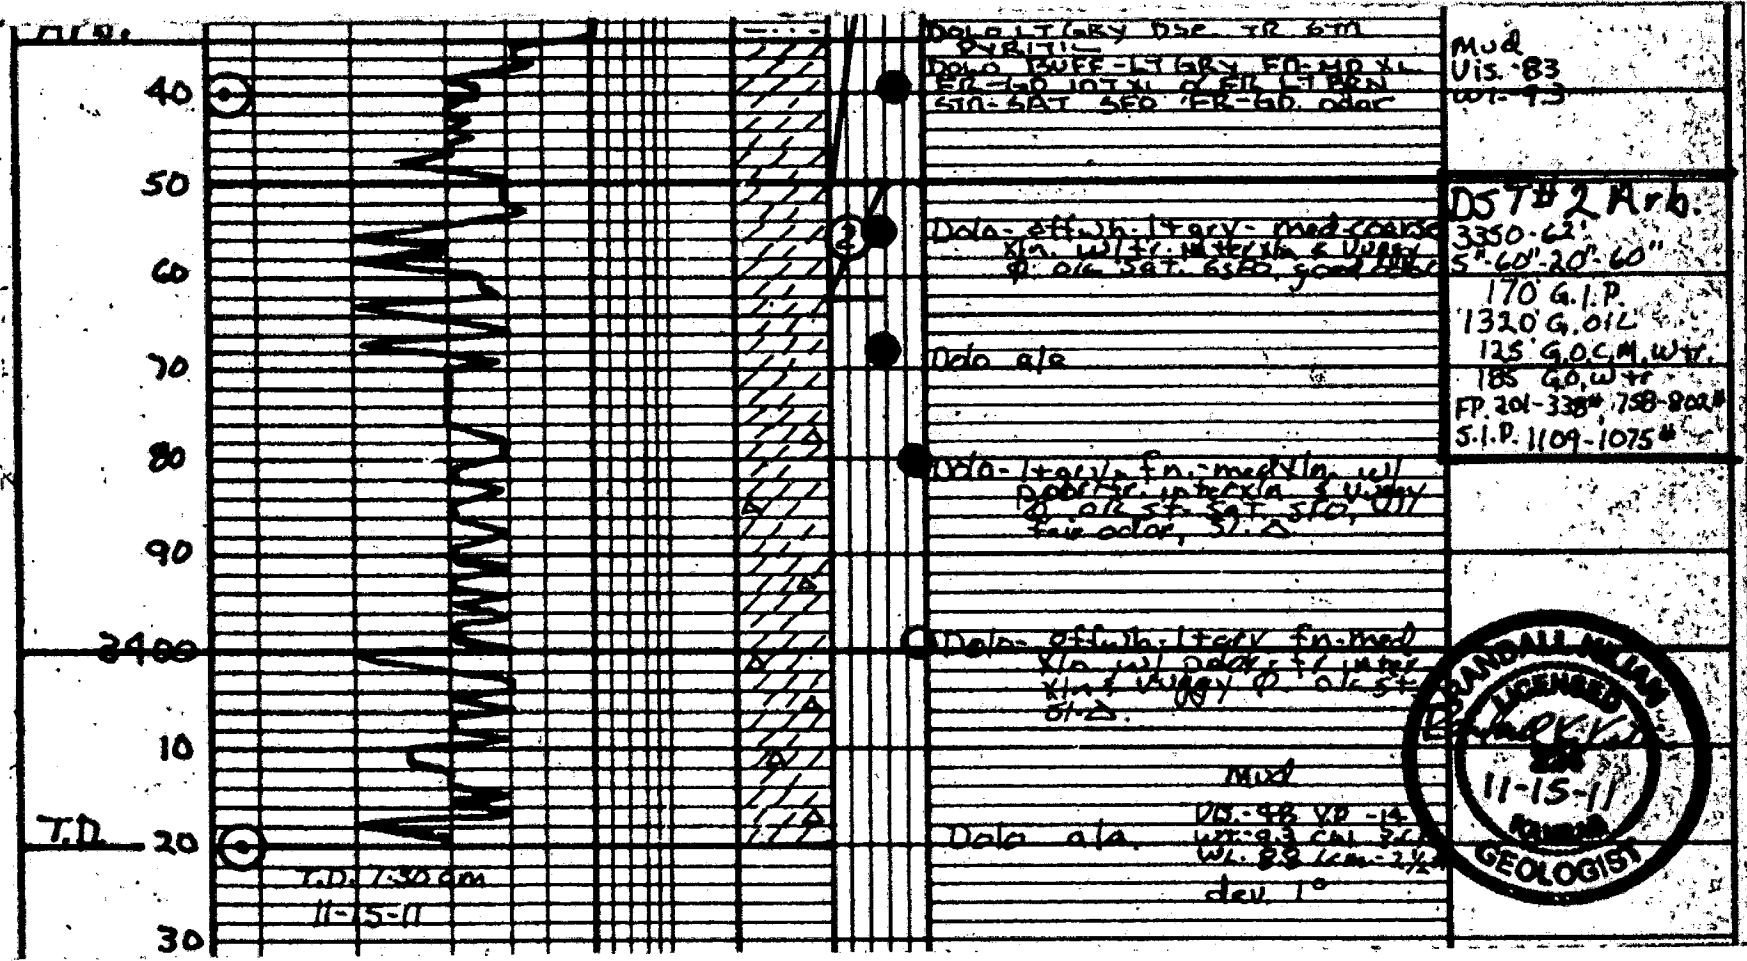 Arb.
40
50
60
70
80
90
3400
10
T.D. 20
30
T.D. 7:30 am
11-15-11
2
DOLO LT GRY DSE. TR STN
PYRITIC
DOLO BUFF-LT GRY FN-MD XL.
FR-GD INTXL FR LT BRN
STN-SAT SFO FR-GD odor
Dolo- offwh-ltgry-med-coarse
xln. w/tr. interxln & vuggy
Ø. oil sat. GSFO, good odor
Dolo a/a
Dolo-ltgry, fn.-medxln, w/
poor-fr. interxln & vuggy
Ø oil st-sat SFO,
fair odor, sl. △
Dolo- offwh-ltgry fn-med
xln w/ poor-fr inter
xln & vuggy Ø. oil st
sl. △.
Mud
Vis.-48 Y.P -14
Dolo a/a. WT.-9.3
WL. 8.8 lcm-2½#
dev. 1°
Mud
Vis.-83
WT-9.3
DST# 2 Arb.
3350-62'
5"-60"-20"-60"
170' G.I.P.
1320' G.OIL
125' G.O.C.M.Wtr.
185' G.O.Wtr
FP. 201-338#, 758-802#
S.I.P. 1109-1075#
RANDALL KILIAN
LICENSED
11-15-11
KANSAS
GEOLOGIST